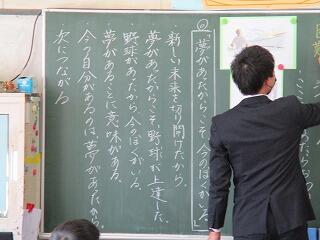 ◎「夢があったからこそ今のぼくがいる」
・新しい未来を切り開けたから。
・夢があったからこそ、野球が上達した。
・野球があったから今のぼくがいる。
・夢があることに意味がある。
・今の自分があるのは、夢があったから。
・次につながる